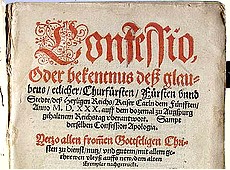 Confessio,
Oder bekentnus deß glau-
bens / etlicher / Churfürsten / Fürsten vnnd
Stedte / deß Heyligen Reichs / Keiser Carln dem Fünfften /
Anno M. D. XXX. auff dem dozmal zu Augspurg
gehaltenem Reichstag vberantwort. Sampt
derselben Confession Apologia.
Yetzo allen fromen Gottseligen Chri-
sten zu dienst / nutz / vnd gutem / mit allem ge-
threwen vleyß auffs new / dem alten
Exemplar nachgetruckt.